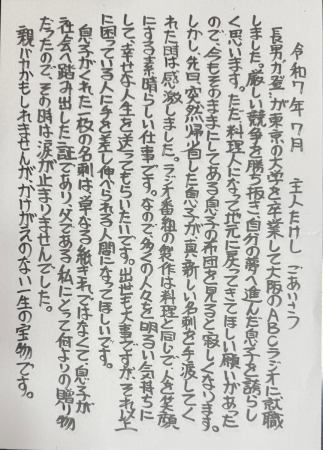 令和7年7月　主人たけし　ごあいさつ
長男が登)が東京の大学を卒業して大阪のABCラジオに就職
しました。厳しい競争を勝ち抜き、自分の夢へ進んだ息子を誇らし
く思います。ただ料理人になって地元に戻ってきてほしい願いがあった
ので、今もそのままにしてある息子の布団を見ると寂しくなります。
しかし先日、突然帰省した息子が真新しい名刺を手渡してく
れた時は感激しました。ラジオ番組の製作は料理と同じで、人を笑顔
にする素晴らしい仕事です。なので、多くの人々を明るい気持ちに
して、幸せな人生を送ってもらいたいです。出世も大事ですが、それ以上
に困っている人に手を差し伸べられる人間になってほしいです。
息子がくれた一枚の名刺は、単なる紙きれではなくて、息子が
社会へ踏み出した証であり、父である私にとって何よりの贈り物
だったので、その時は涙が止まりませんでした。
親バカかもしれませんが、かけがえのない一生の宝物です。